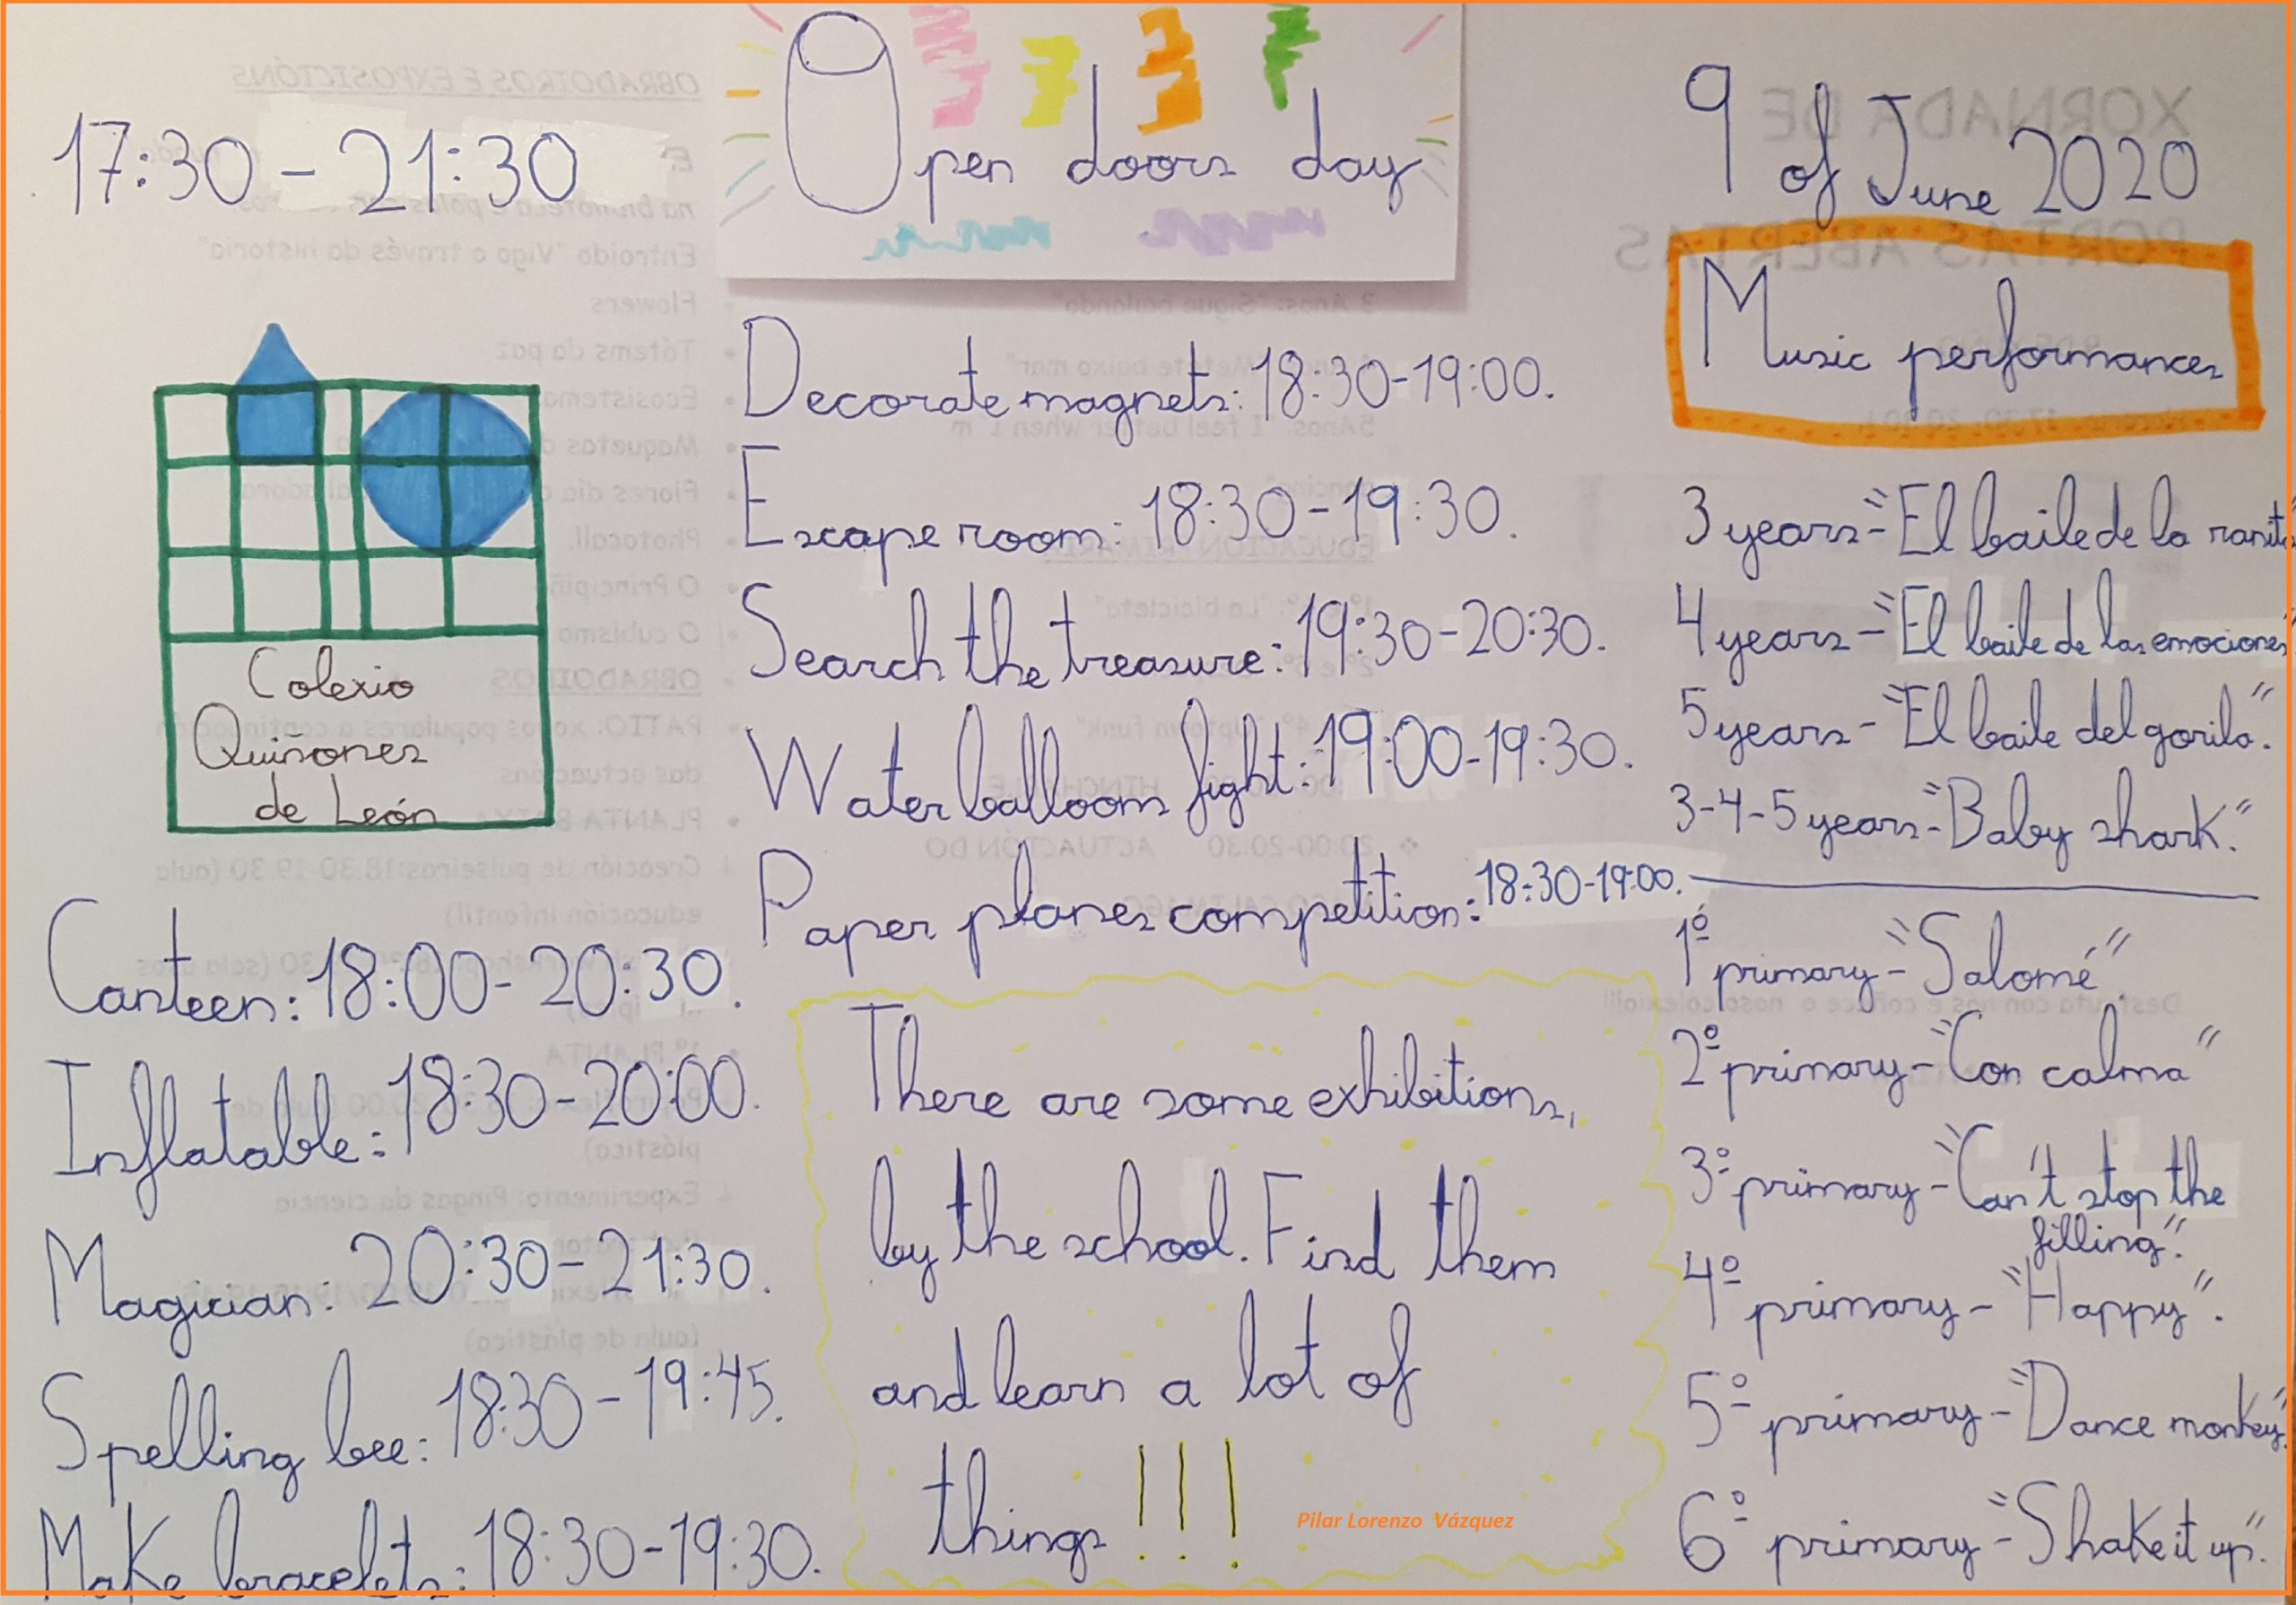 17:30-21:30
Open doors day
9 of June 2020
Colexio
Quiñones
de León
Canteen: 18:00-20:30.
Inflatable: 18:30-20:00.
Magician: 20:30-21:30.
Spelling bee: 18:30-19:45.
Make bracelets: 18:30-19:30.
Decorate magnets: 18:30-19:00.
Escape room: 18:30-19:30.
Search the treasure: 19:30-20:30.
Water balloons fight: 19:00-19:30.
Paper planes competition: 18:30-19:00.
There are some exhibitions,
by the school. Find them
and learn a lot of
things!!!
Pilar Lorenzo Vázquez
Music performances
3 years-"El baile de la ranita"
4 years-"El baile de las emociones"
5 years-"El baile del gorila".
3-4-5 years-"Baby shark".
1º primary-"Salomé".
2º primary-"Con calma"
3º primary-"Can't stop the
filling".
4º primary-"Happy".
5º primary-"Dance monkey".
6º primary-"Shake it up".